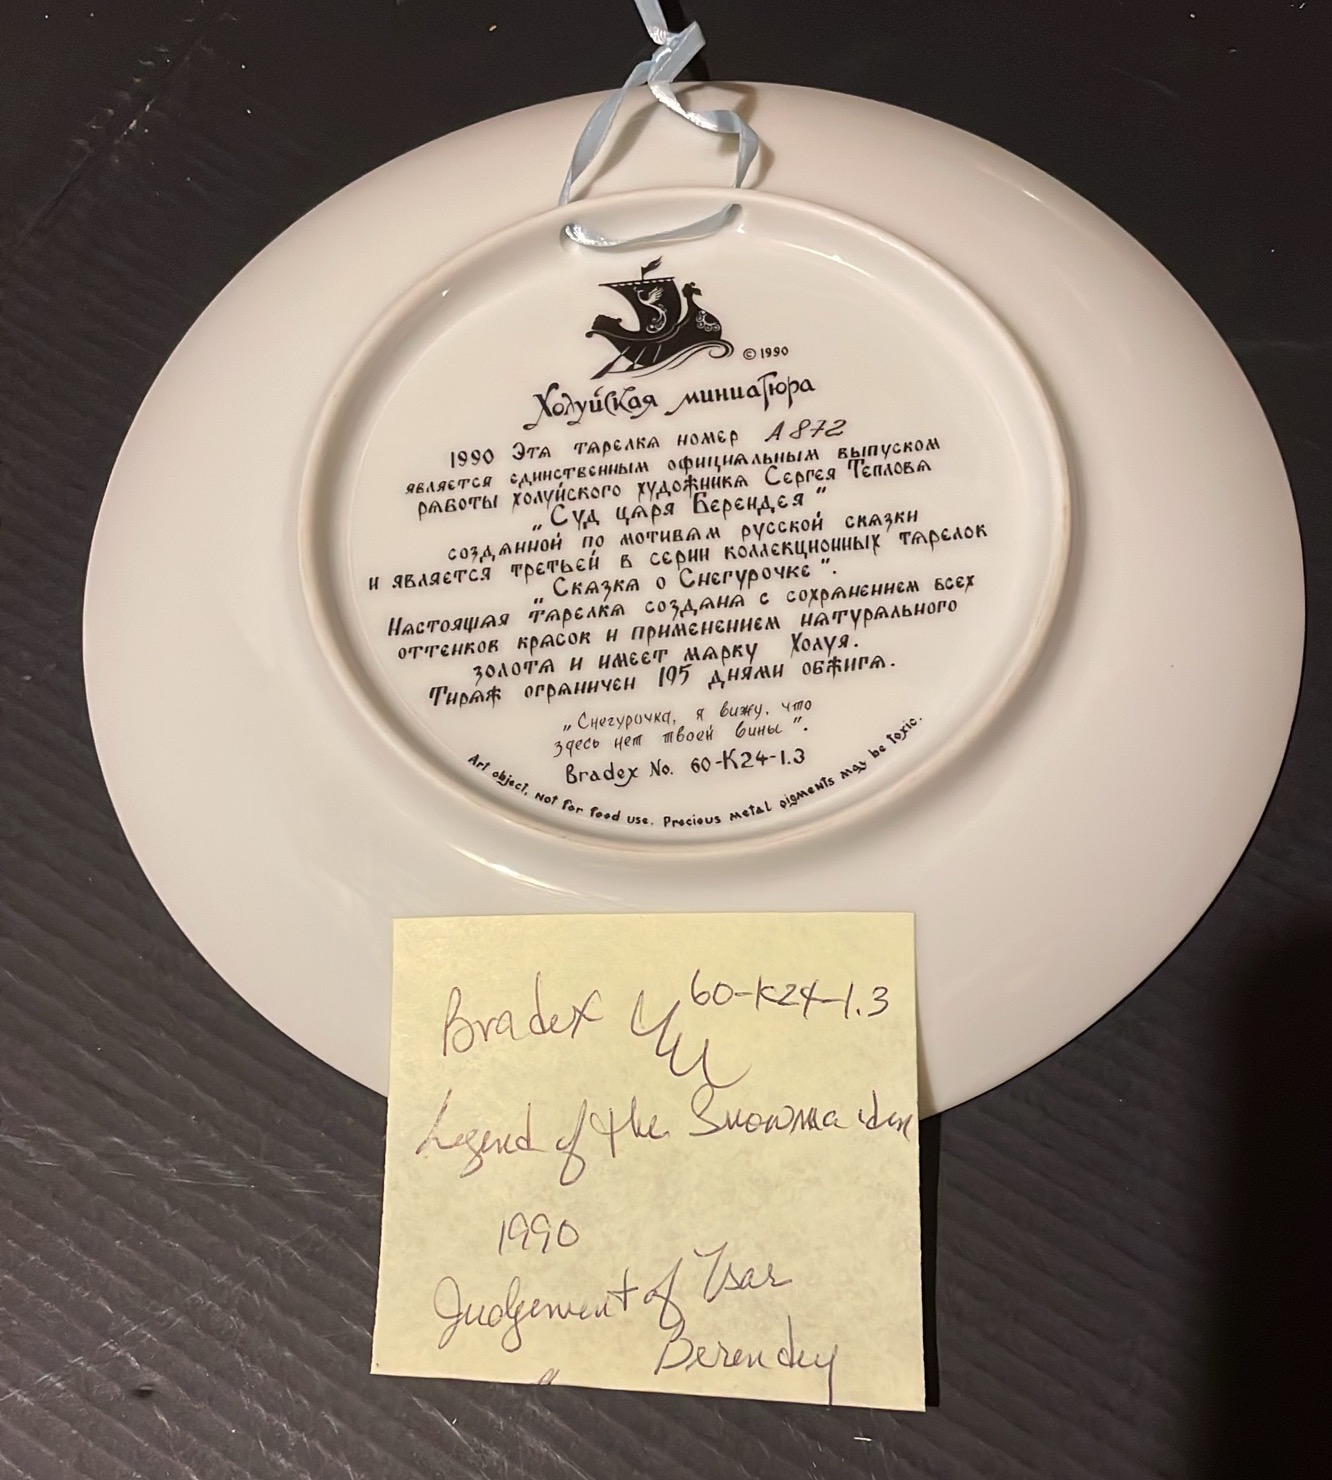 © 1990
Холуйская миниатюра
1990 Эта тарелка номер A 872
является единственным официальным выпуском
работы холуйского художника Сергея Теплова
„Суд царя Берендея"
созданной по мотивам русской сказки
и является третьей в серии коллекционных тарелок
„Сказка о Снегурочке".
Настоящая тарелка создана с сохранением всех
оттенков красок и применением натурального
золота и имеет марку Холуя.
Тираж ограничен 195 днями обжига.
„Снегурочка, я вижу, что
здесь нет твоей вины".
Bradex No. 60-K24-1.3
Art object, Not for food use. Precious metal pigments may be toxic.
Bradex 60-K24-1.3
Legend of the Snowmaiden
1990
Judgement of Tsar
Berendey